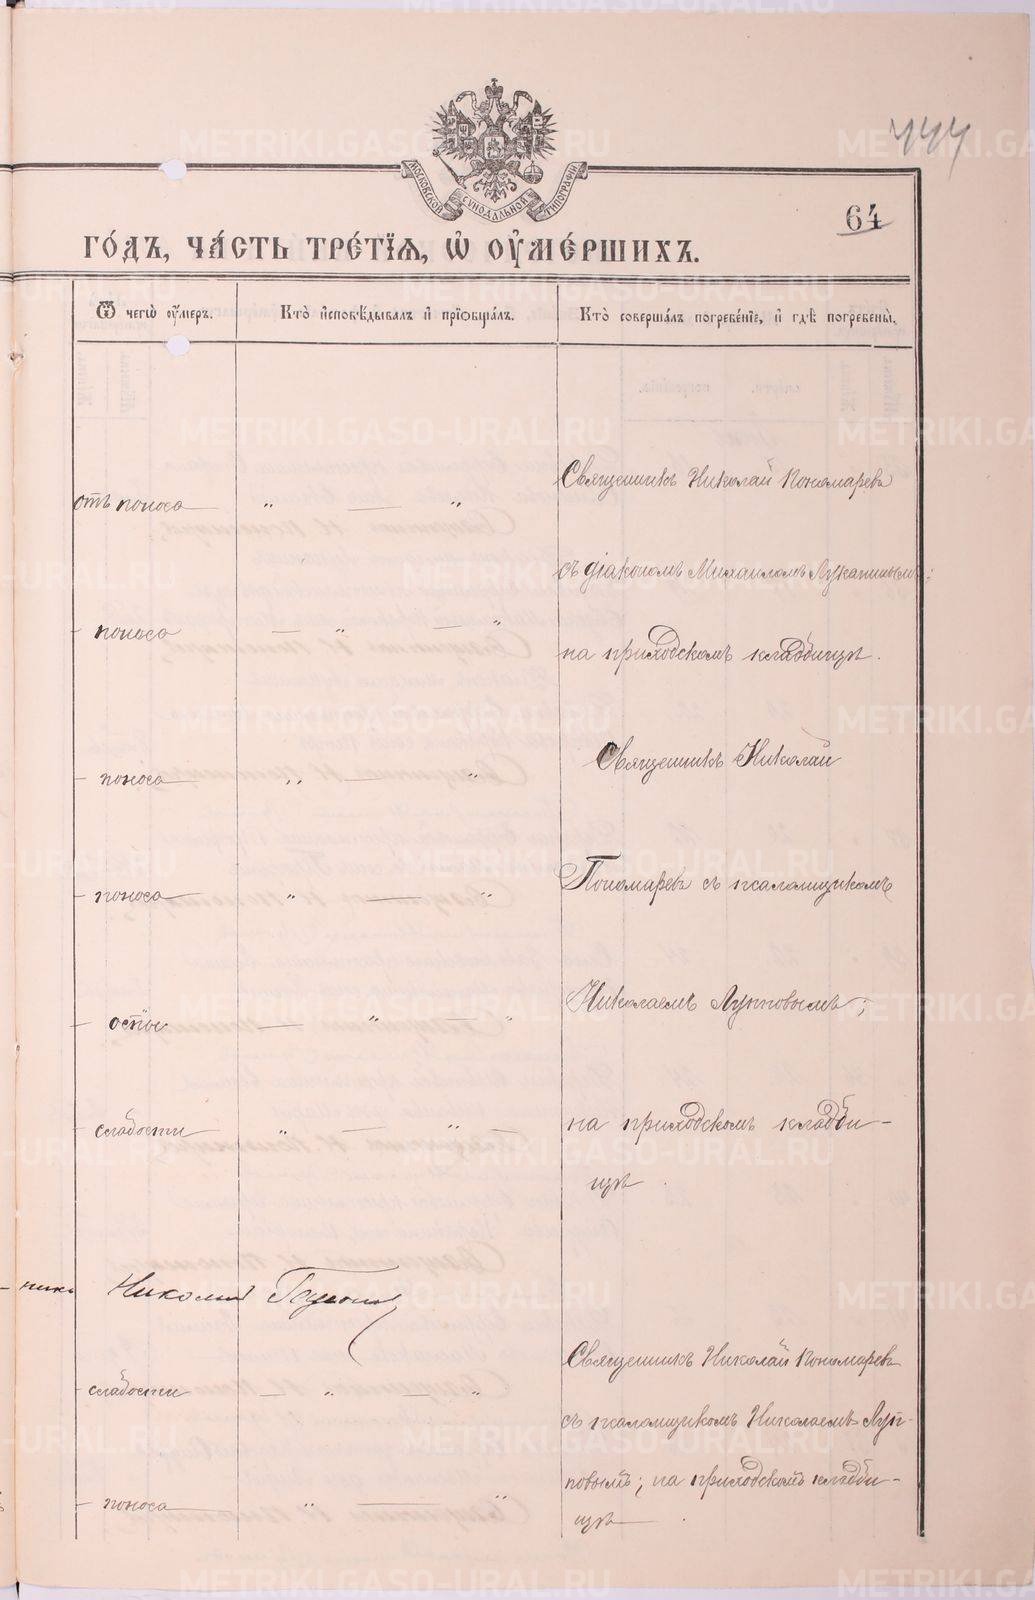 444
МОСКОВСКОЙ СѴНОДАЛЬНОЙ ТИПОГРАФІИ
64
ГОДЪ, ЧАСТЬ ТРЕТІѦ, Ѡ ОУМЕРШИХЪ.
Ѿ чегѡ оумеръ. Кто исповѣдывалъ и приѡбщалъ. Кто совершалъ погребеніе, и гдѣ погребены.
Священникъ Николай Пономаревъ
отъ поноса „ — „
съ діакономъ Михаиломъ Лукапинымъ;
– поноса — „ — „
на приходскомъ кладбищѣ.
Священникъ Николай
– поноса „ — „
Пономаревъ съ псаломщикомъ
– поноса „ — „
Николаемъ Лупповымъ;
– оспы — „ — „
на приходскомъ кладби-
– слабости „ — „ —
щѣ.
– никъ Николай
Священникъ Николай Пономаревъ
– слабости — „ — „
съ псаломщикомъ Николаемъ Луп-
повымъ; на приходскомъ кладби-
– поноса „ — „
щѣ.
METRIKI.GASO-URAL.RU